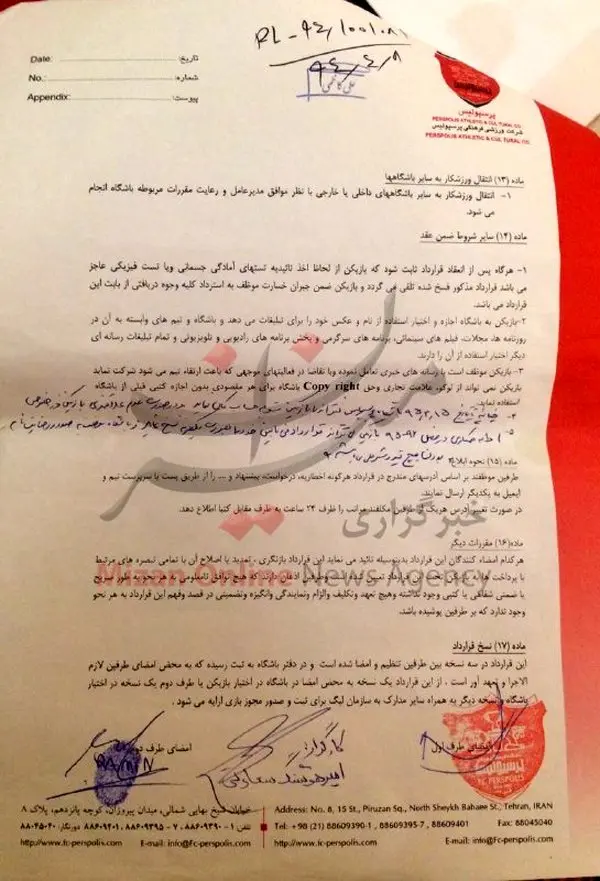 PL-94/1001081
94/4/8
Date:
تاریخ:
No.:
شماره:
Appendix:
پیوست:
پرسپولیس
PERSPOLIS ATHLETIC & CULTURAL CO
شرکت ورزشی فرهنگی پرسپولیس
PERSPOLIS ATHLETIC & CULTURAL CO.
ماده (۱۳) انتقال ورزشکار به سایر باشگاهها
۱- انتقال ورزشکار به سایر باشگاههای داخلی یا خارجی با نظر موافق مدیرعامل و رعایت مقررات مربوطه باشگاه انجام
می شود.
ماده (۱۴) سایر شروط ضمن عقد
۱- هرگاه پس از انعقاد قرارداد ثابت شود که بازیکن از لحاظ اخذ تائیدیه تستهای آمادگی جسمانی ویا تست فیزیکی عاجز
می باشد قرارداد مذکور فسخ شده تلقی می گردد و بازیکن ضمن جبران خسارت موظف به استرداد کلیه وجوه دریافتی از بابت این
قرارداد می باشد.
۲-بازیکن به باشگاه اجازه و اختیار استفاده از نام و عکس خود را برای تبلیغات می دهد و باشگاه و تیم های وابسته به آن در
روزنامه ها، مجلات، فیلم های سینمائی، برنامه های سرگرمی و پخش برنامه های رادیویی و تلویزیونی و تمام تبلیغات رسانه ای
دیگر اختیار استفاده از آن را دارند.
۳- بازیکن موظف است با رسانه های خبری تعامل نموده وبا تقاضا در فعالیتهای موجهی که باعث ارتقاء تیم می شود شرکت نماید
بازیکن نمی تواند از لوگو، علامت تجاری وحق Copy right باشگاه برای هر مقصودی بدون اجازه کتبی قبلی از باشگاه
استفاده نماید.
۴-
۵-
ماده (۱۵) نحوه ابلاغ
طرفین موظفند بر اساس آدرسهای مندرج در قرارداد هرگونه اخطاریه، درخواست، پیشنهاد و ... را از طریق پست یا سرپرست تیم و
ایمیل به یکدیگر ارسال نمایند.
در صورت تغییر آدرس هریک از طرفین مکلفند مراتب را ظرف ۲۴ ساعت به طرف مقابل کتبا اطلاع دهد.
میزان
خبرگزاری
ماده(۱۶) مقررات دیگر
هرکدام امضاء کنندگان این قرارداد بدینوسیله تائید می نماید این قرارداد بازنگری ، تمدید یا اصلاح آن با تمامی تبصره های مرتبط
با پرداخت ها
Mizan Online News Agency
یا ضمنی شفاقی یا کتبی وجود نداشته وهیچ تعهد وتکلیف والزام ونمایندگی وانگیزه وتضمینی در قصد وفهم این قرارداد به هر نحو
وجود ندارد که بر طرفین پوشیده باشد.
ماده (۱۷) نسخ قرارداد
این قرارداد در سه نسخه بین طرفین تنظیم و امضا شده است و در دفتر باشگاه به ثبت رسیده که به محض امضای طرفین لازم
الاجرا و تعهد آور است ، از این قرارداد یک نسخه به محض امضا در باشگاه در اختیار بازیکن یا طرف دوم یک نسخه در اختیار
باشگاه و نسخه دیگر به همراه سایر مدارک به سازمان لیگ برای ثبت و صدور مجوز بازی ارایه می شود .
امضای طرف اول
امضای طرف دوم
FC PERSPOLIS
خیابان شیخ بهایی شمالی، میدان پیروزان، کوچه پانزدهم، پلاک ۸
تلفن ۱ - ۸۸۶۰۹۳۹۰ ، ۷ - ۸۸۶۰۹۳۹۵ ، ۸۸۶۰۹۴۰۱ دورنگار: ۸۸۰۴۵۰۴۰
http://www.fc-perspolis.com E-mail: info@Fc-perspolis.com
Address: No. 8, 15 St., Piruzan Sq., North Sheykh Bahaee St., Tehran, IRAN
Tel: + 98 (21) 88609390-1 , 88609395-7 , 88609401 Fax: 88045040
http://www.fc-perspolis.com E-mail: info@Fc-perspolis.com